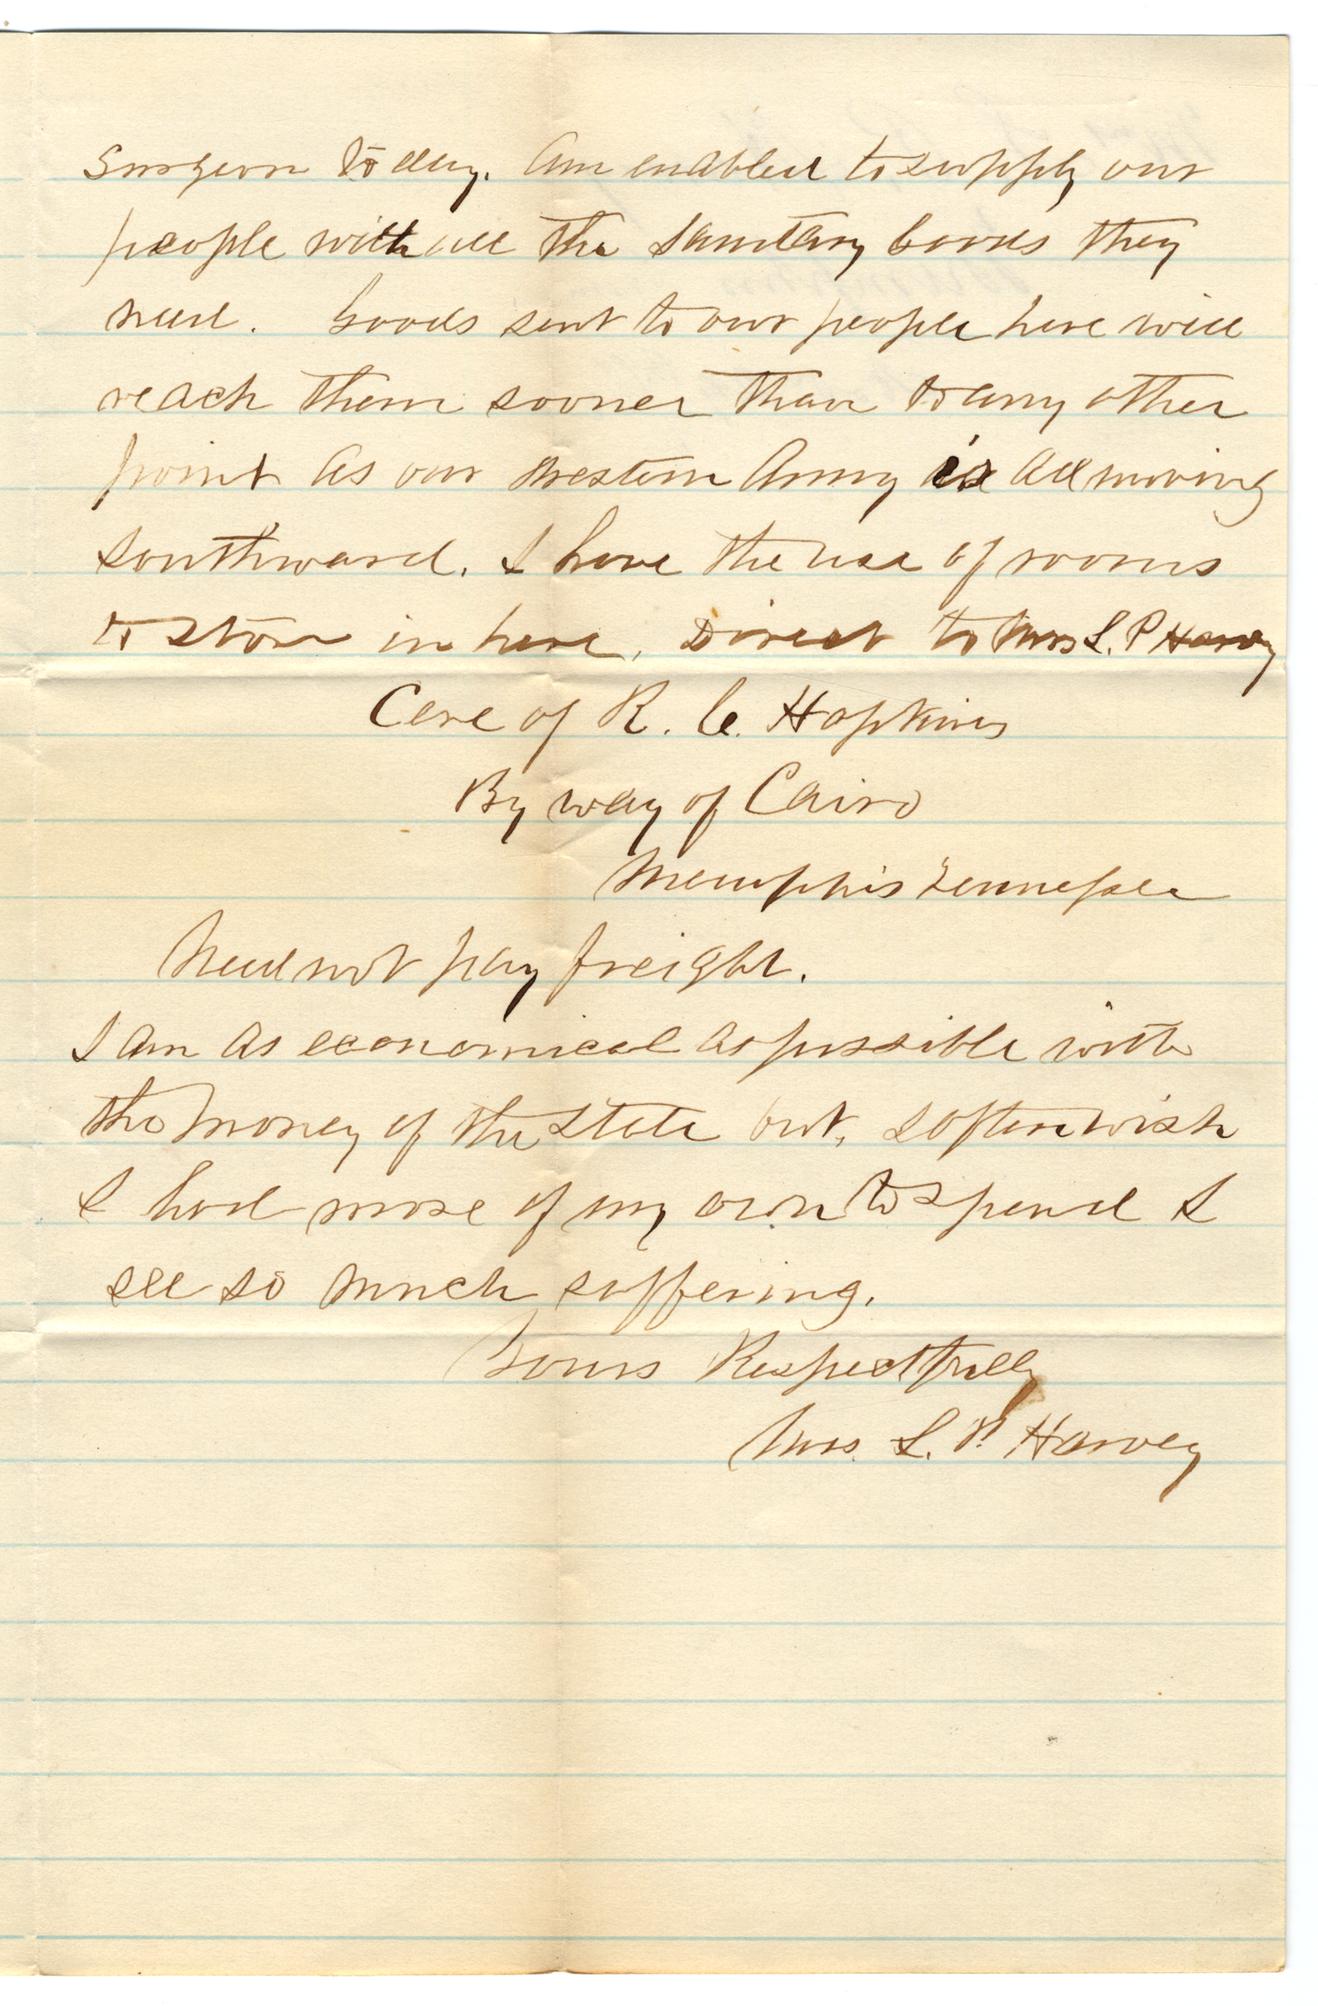 Surgeon to day. Am enabled to supply our
people with all the Sanitary Goods they
need. Goods sent to our people here will
reach them sooner than to any other
point as our Western Army is all moving
Southward. I have the use of rooms
to store in here. Direct to Mrs L. P Harvey
Care of R. C. Hopkins
By way of Cairo
Memphis Tennessee
Need not pay freight.
I am as economical as possible with
the money of the State but, I often wish
I had more of my own to spend I
see so much suffering.
Yours Respectfully
Mrs. L. P. Harvey